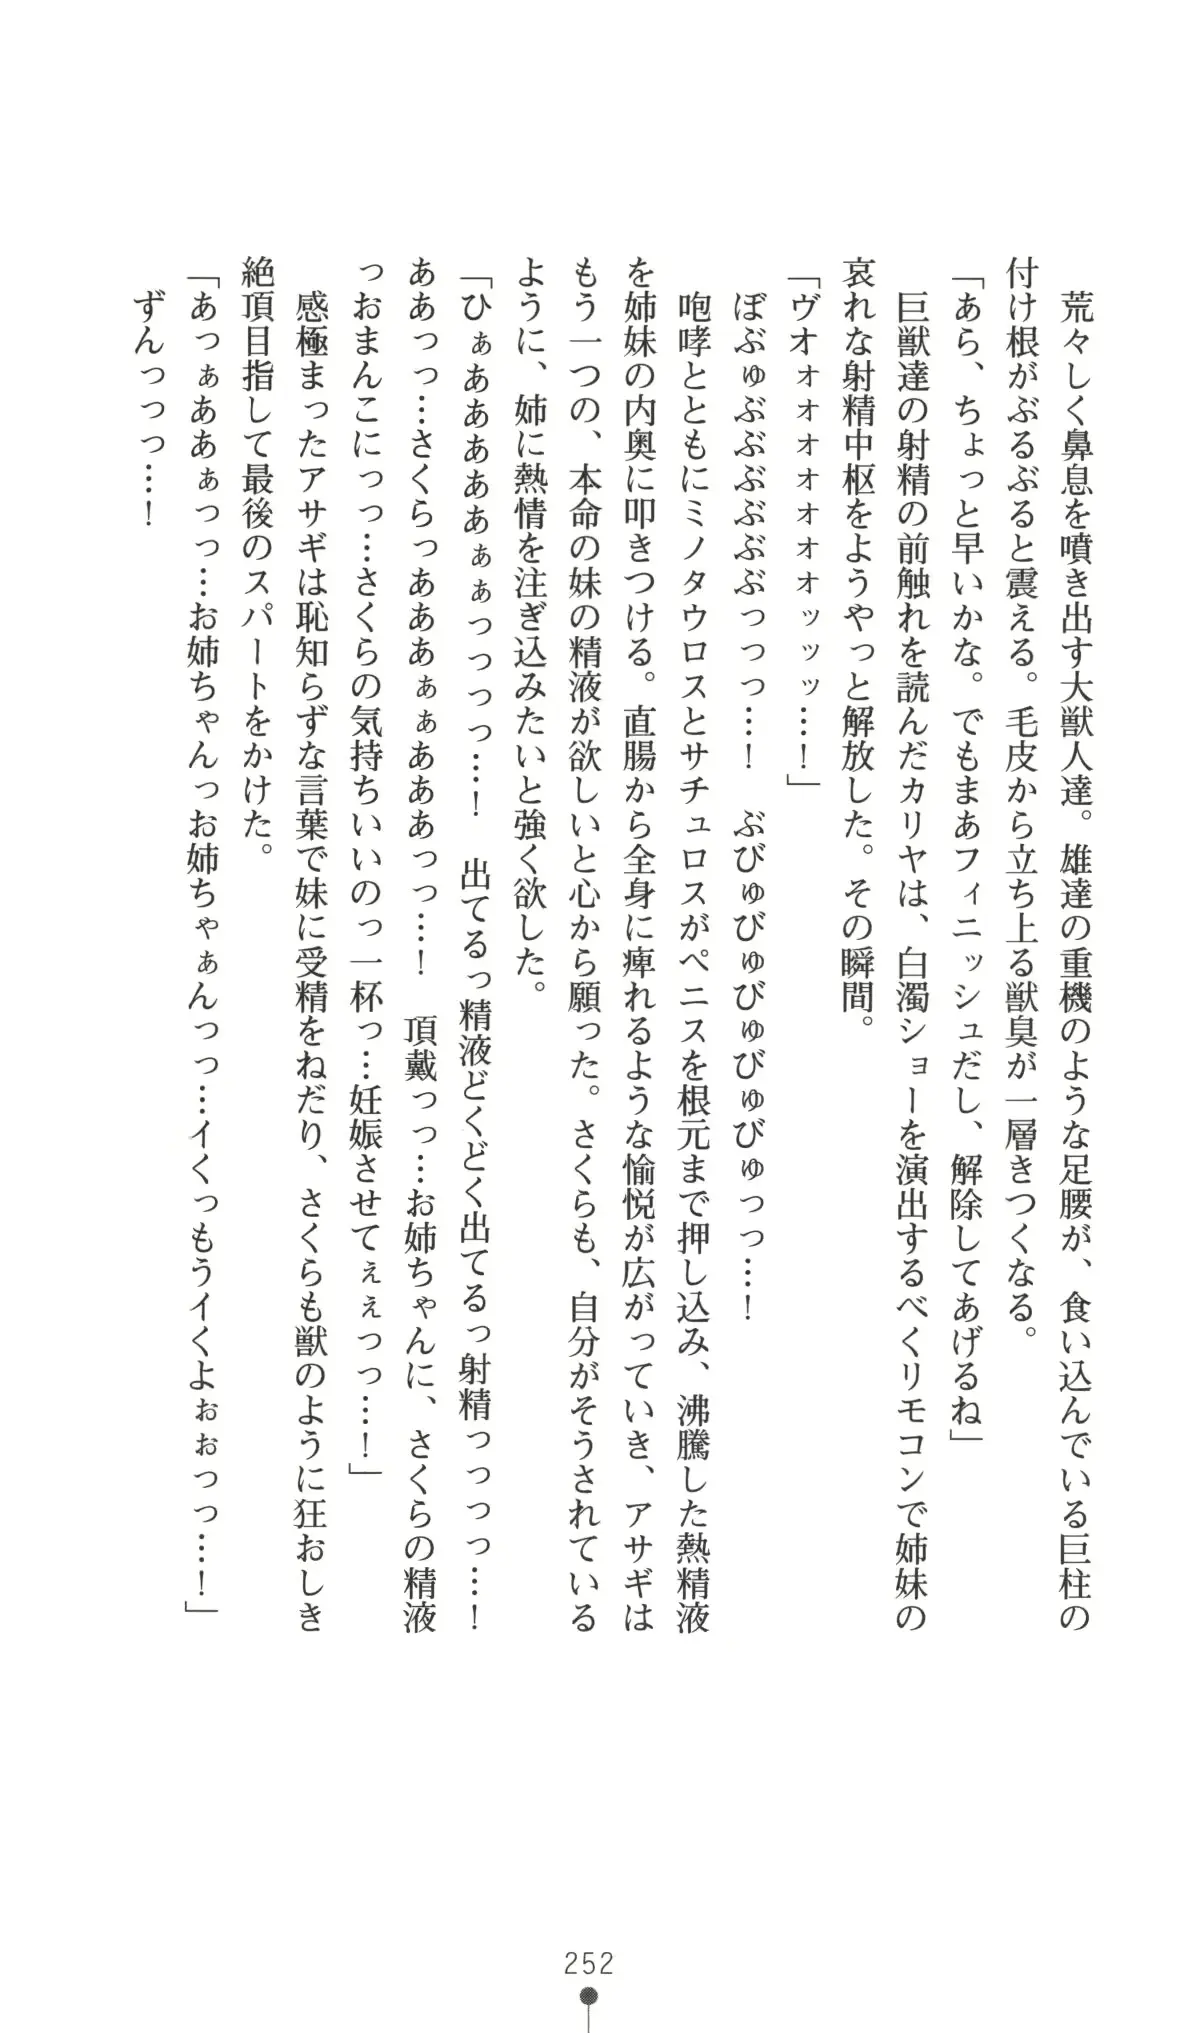 荒々しく鼻息を噴き出す大獣人達。雄達の重機のような足腰が、食い込んでいる巨柱の
付け根がぶるぶると震える。毛皮から立ち上る獣臭が一層きつくなる。
「あら、ちょっと早いかな。でもまあフィニッシュだし、解除してあげるね」
巨獣達の射精の前触れを読んだカリヤは、白濁ショーを演出するべくリモコンで姉妹の
哀れな射精中枢をようやっと解放した。その瞬間。
「ヴオォォォォォォォッッッ…！」
ぼぶゅぶぶぶぶぶっっっ…！　ぶびゅびゅびゅびゅびゅっっ…！
咆哮とともにミノタウロスとサチュロスがペニスを根元まで押し込み、沸騰した熱精液
を姉妹の内奥に叩きつける。直腸から全身に痺れるような愉悦が広がっていき、アサギは
もう一つの、本命の妹の精液が欲しいと心から願った。さくらも、自分がそうされている
ように、姉に熱情を注ぎ込みたいと強く欲した。
「ひぁああああああぁぁっっっっ…！　出てるっ精液どくどく出てるっ射精っっっっ…！
ああっっ…さくらっあああぁぁあああっっ…！　頂戴っっ…お姉ちゃんに、さくらの精液
っおまんこにっっ…さくらの気持ちいいのっ一杯っ…妊娠させてぇぇっっ…！」
感極まったアサギは恥知らずな言葉で妹に受精をねだり、さくらも獣のように狂おしき
絶頂目指して最後のスパートをかけた。
「あっぁああぁっっ…お姉ちゃんっお姉ちゃぁんっっ…イくっもうイくよぉぉっっ…！」
ずんっっっ…！
252